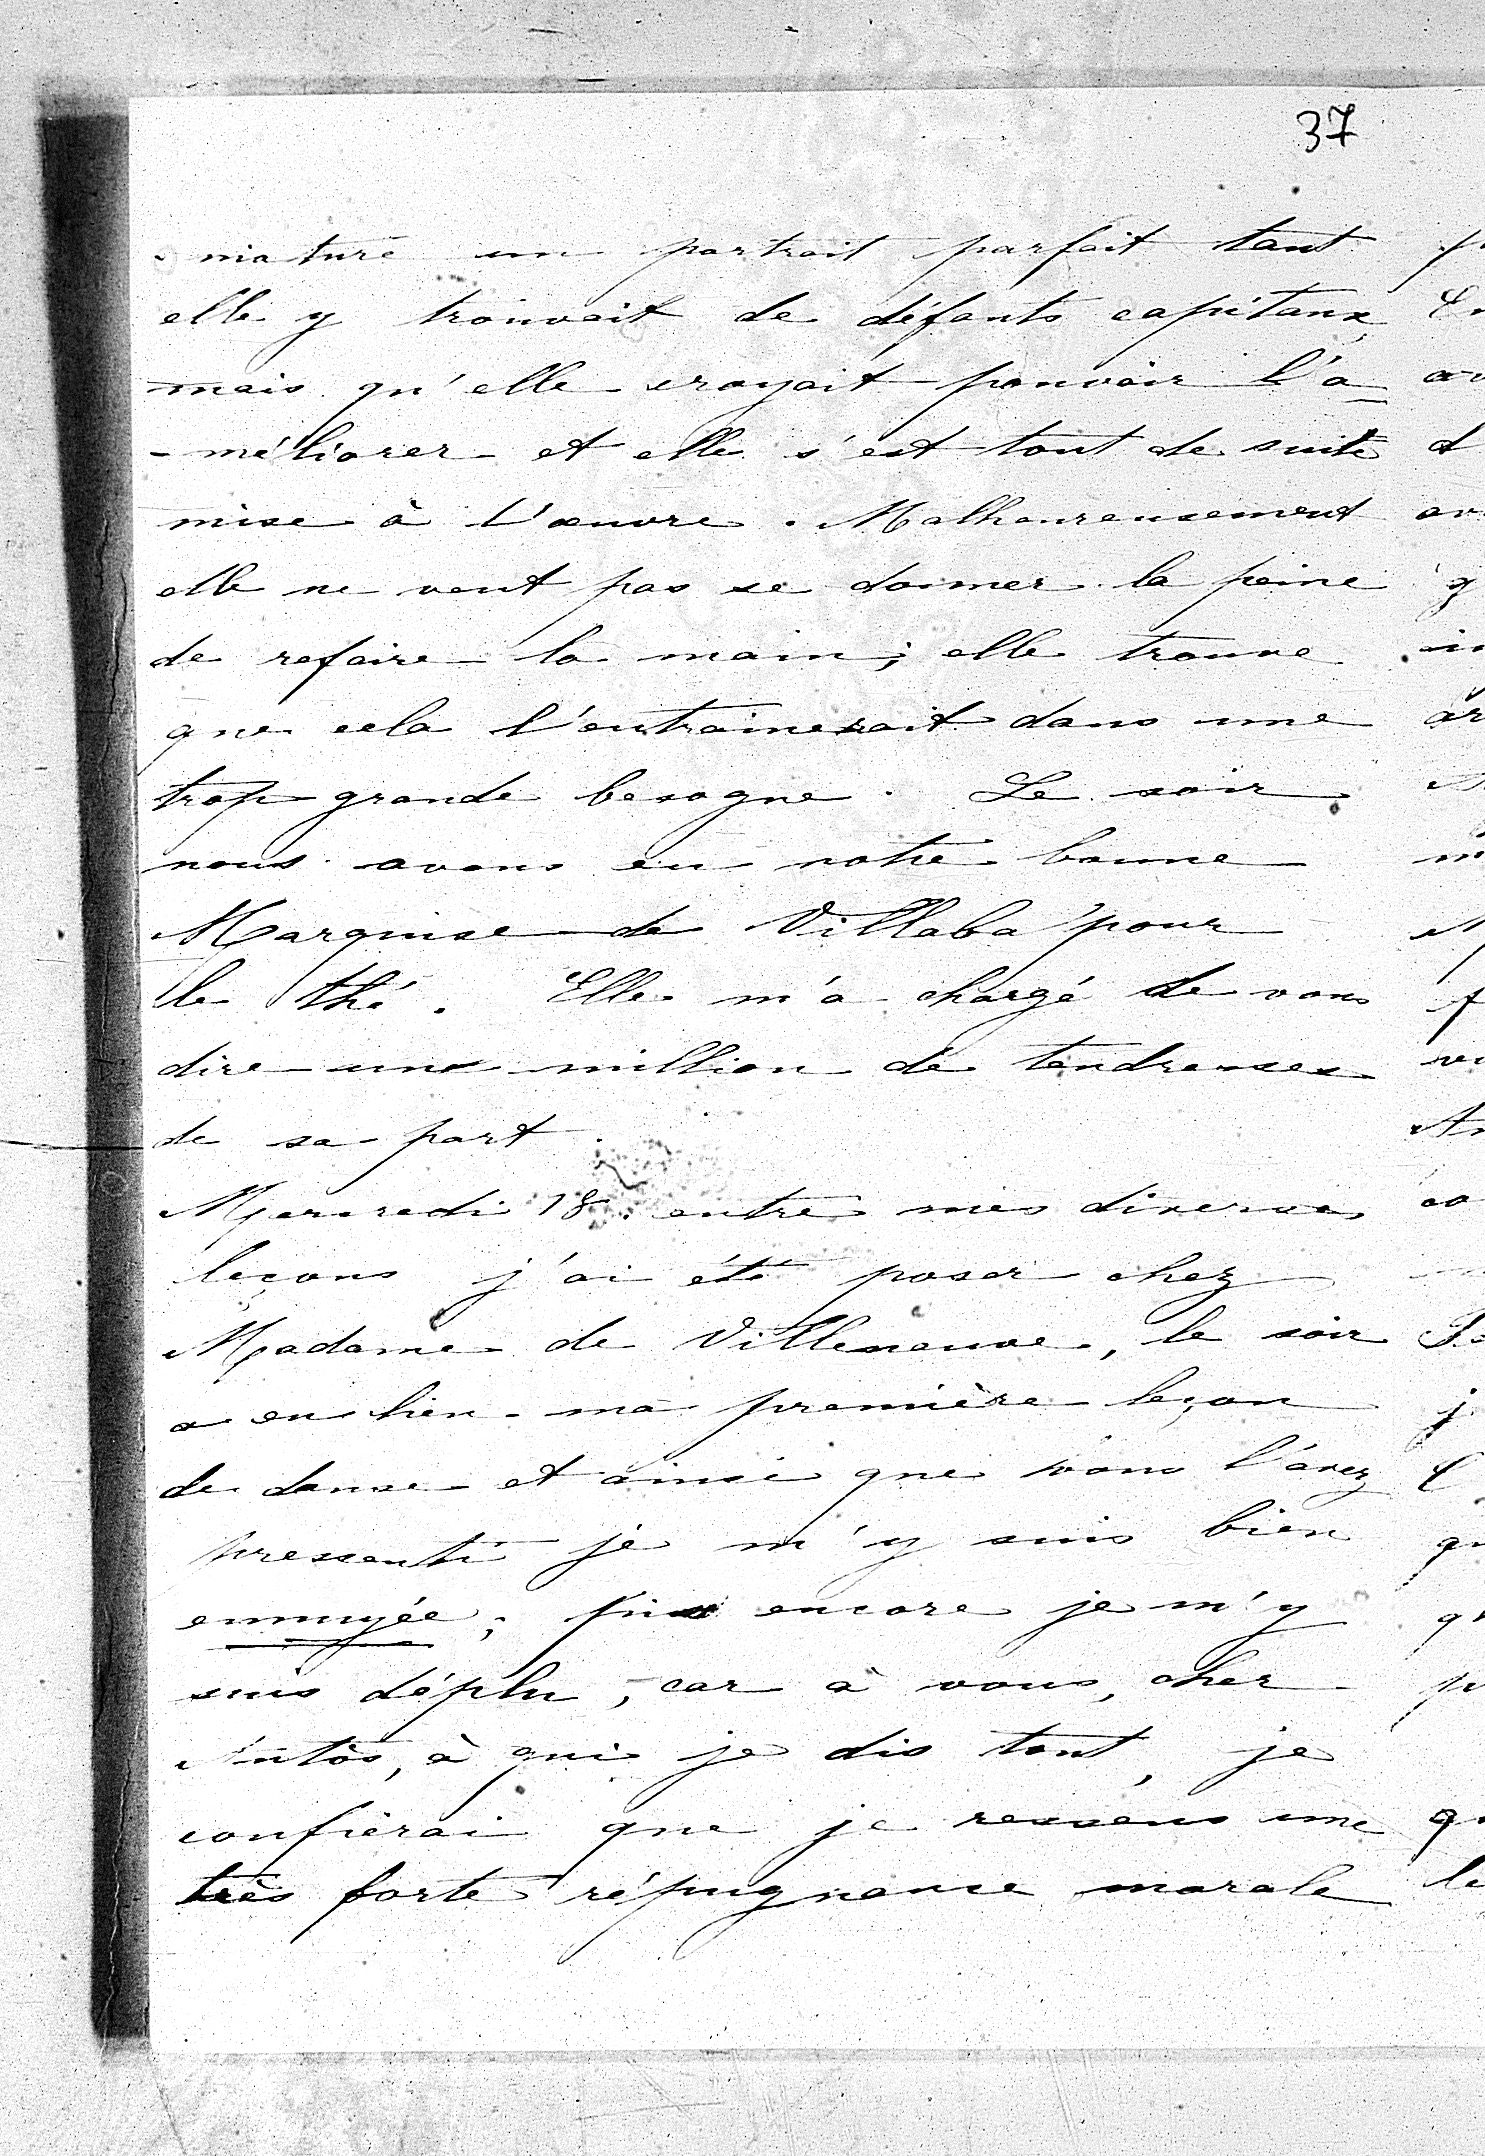 37
- niature un portrait parfait tant
elle y trouvait de défauts capitaux,
mais qu'elle croyait pouvoir l'a-
- méliorer et elle s'est tout de suite
mise à l'œuvre. Malheureusement
elle ne veut pas se donner la peine
de refaire la main; elle trouve
que cela l'entrainerait dans une
trop grande besogne. Le soir
nous avons eu notre bonne
Marquise de Villaba pour
le thé. Elle m'a chargé de vous
dire une million de tendresses
de sa part.
Mercredi 18. entre mes diverses
leçons j'ai été poser chez
Madame de Villeneuve, le soir
a eu lieu ma première leçon
de danse et ainsi que vous l'avez
pressenti je m'y suis bien
ennuyée; plus encore je m'y
suis déplu, car à vous, cher
à qui je dis tout, je
confierai que je ressens une
très forte répugnance morale